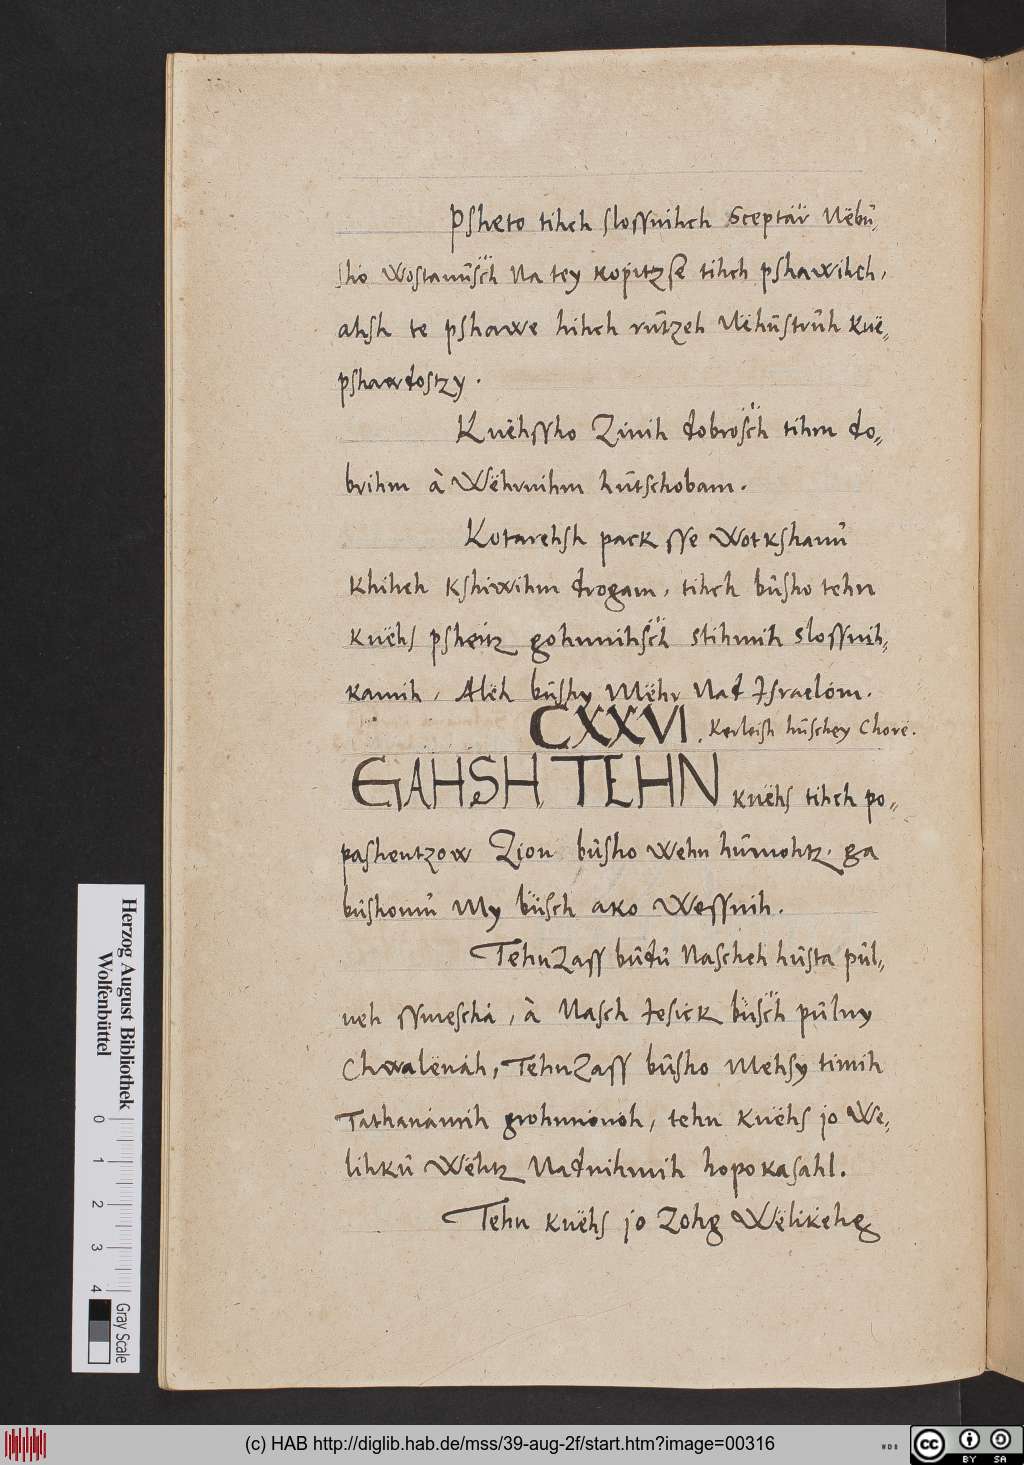 Psheto tihch slossnihch Sceptär Nëbű,,
sho wostanűsch Na tey kopitzse tihch pshawihch,
ahsh te pshawe hihch rűtzeh Nëhűstrűh knë,,
pshawdostzy.
Knëhssho Zinih dobrosch tihm do,,
brihm à Wëhrnihm hűtschobam.
Kotarehsh pack sse wotkshanű
khihch kshiwihm drogam, tihch bűsho tehn
knëhs psheitz gohnnihsch stihmih slossnih,,
kamih, Alëh bűshy Mëhr Nad Israelóm.
CXXVI. Kerleish hűschey Chorë.
GAHSH TEHN knëhs tihch po,,
pashentzow Zion bűsho wehn hűmohtz. ga
bűshomű My bűsch ako Wessnih.
TehnZass bűdű Nascheh hűsta pűl,,
neh ssmeschá, à Nasch Jesick bűsch pűlny
Chwalënáh, TehnZass bűsho Mehsy timih
Tathanámih grohnnónoh, tehn knëhs jo We,,
lihkű Wëhtz Nadnihmih hopokasahl.
Tehn knëhs jo Zohg Wëlikëhg
Herzog August Bibliothek
Wolfenbüttel
0 1 2 3 4
Gray Scale
(c) HAB http://diglib.hab.de/mss/39-aug-2f/start.htm?image=00316
WDB
cc BY SA